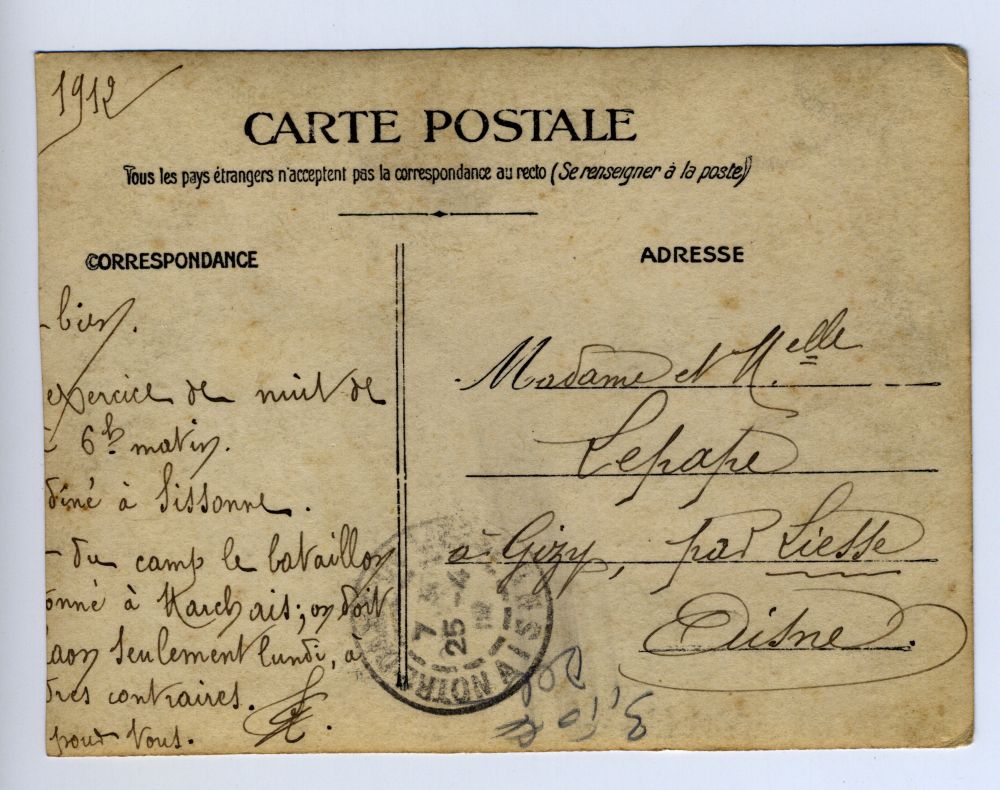 1912
CARTE POSTALE
Tous les pays étrangers n'acceptent pas la correspondance au recto (Se renseigner à la poste)
CORRESPONDANCE
bien.
exercice de nuit de
6h matin.
diné à Sissonne.
du camp le bataillon
onné à Marchais; on doit
Laon seulement lundi, à
dres contraires.
pour vous.
ADRESSE
Madame et Melle
Lepape
à Gizy, par Liesse
Aisne.
7
25 -4
NOTRE
AISNE
3,50